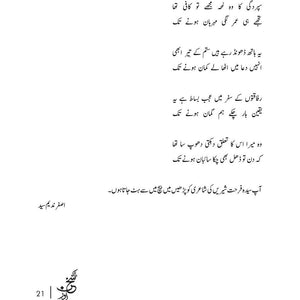 سپردگی کا وہ لمحہ مجھے تو کافی تھا
تجھے ہی عمر لگی مہربان ہونے تک
یہ ہاتھ ڈھونڈ رہے ہیں ستم کے تیر ابھی
انہیں دعا میں اٹھا لے کمان ہونے تک
رفاقتوں کے سفر میں عجب بساط ہے یہ
یقین ہار چکے ہم گمان ہونے تک
وہ میرا اس کا تعلق دیکتی دھوپ سا تھا
کہ دن تو ڈھل بھی چکا سائبان ہونے تک
آپ سیدہ فرحت شیریں کی شاعری کو پڑھیں میں بیچ میں سے ہٹ جاتا ہوں۔
اصغر ندیم سید
21